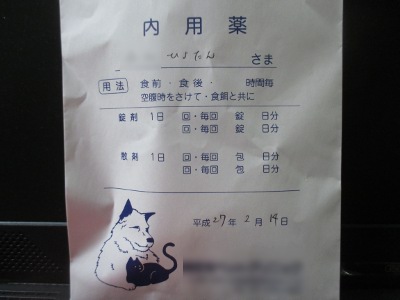 内用薬
ひょたん さま
用法 食前・食後・ 時間毎
空腹時をさけて・食餌と共に
錠剤 1日 回・毎回 錠 日分
回・毎回 錠 日分
散剤 1日 回・毎回 包 日分
回・毎回 包 日分
平成27年2月14日